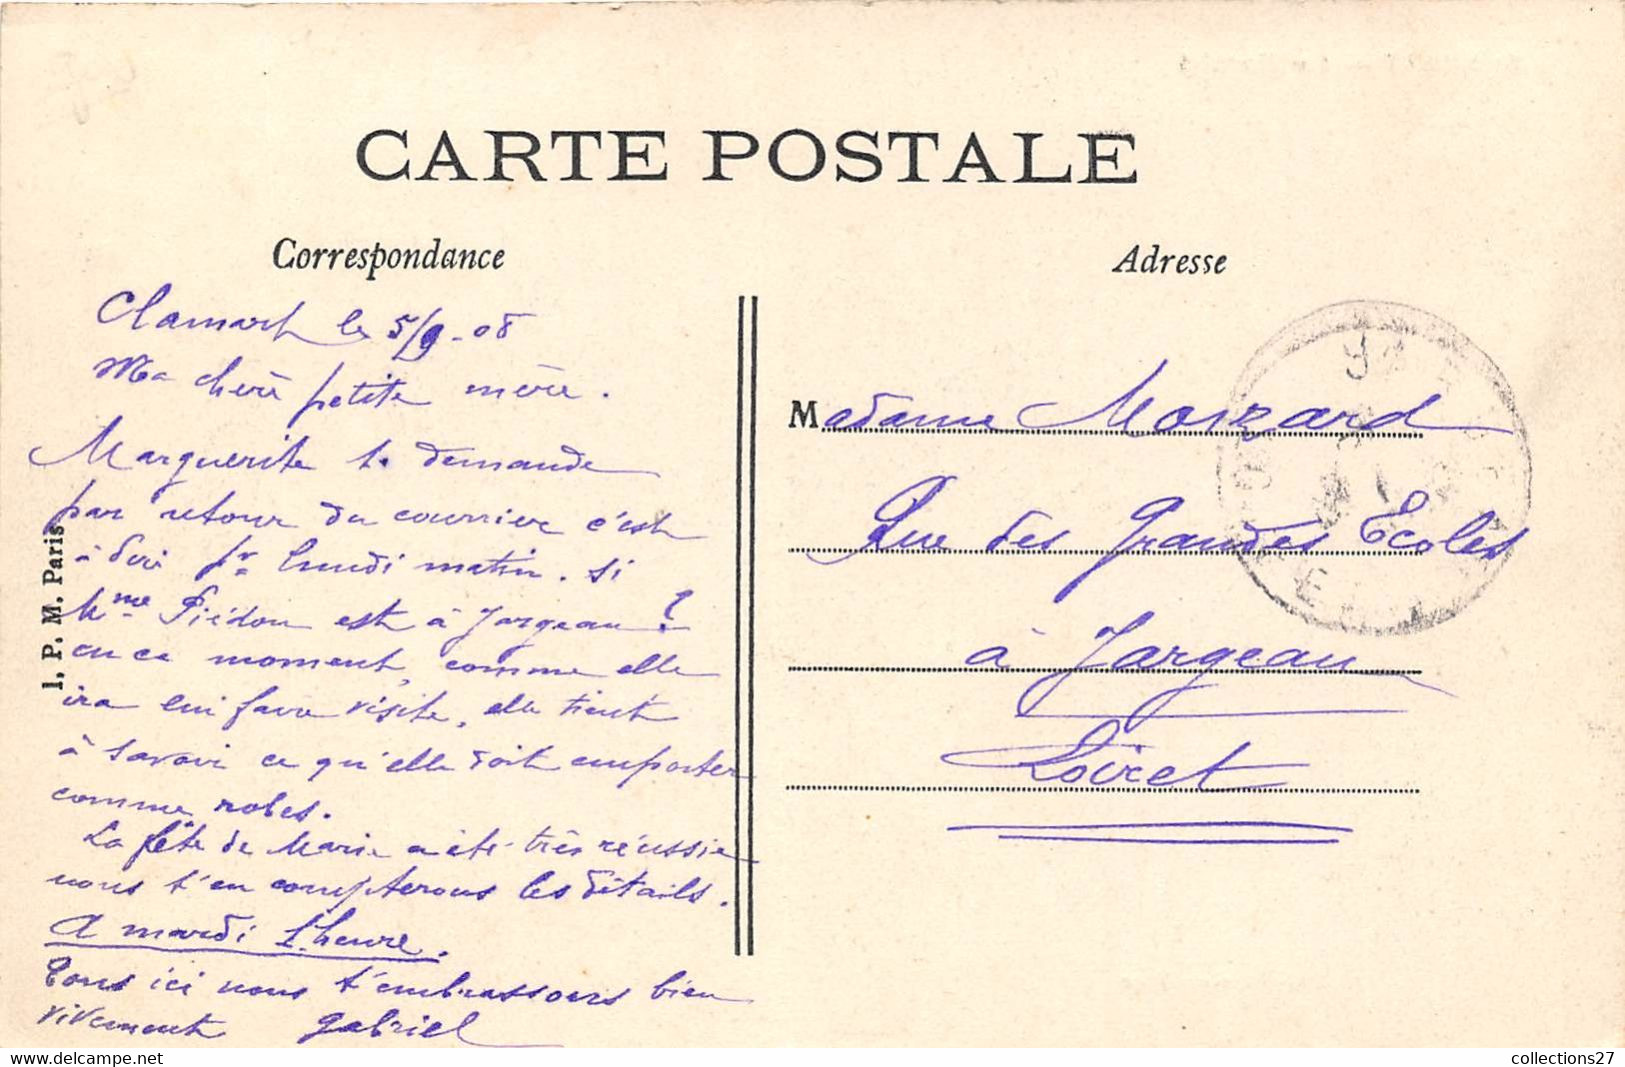 CARTE POSTALE
Correspondance
Clamart le 5/9-08
Ma chère petite mère.
Marguerite te demande
par retour du courrier c'est
à dire pr lundi matin. si
Mme Piédon est à Jargeau ?
en ce moment, comme elle
ira lui faire visite, elle tient
à savoir ce qu'elle doit emporter
comme robes.
La fête de Marie a été très réussie
nous t'en compterons les détails.
A mardi 1 heure.
Tous ici nous t'embrassons bien
vivement gabriel
I. P. M. Paris
Adresse
Madame Moizard
Rue des Grandes Ecoles
à Jargeau
Loiret
collections27